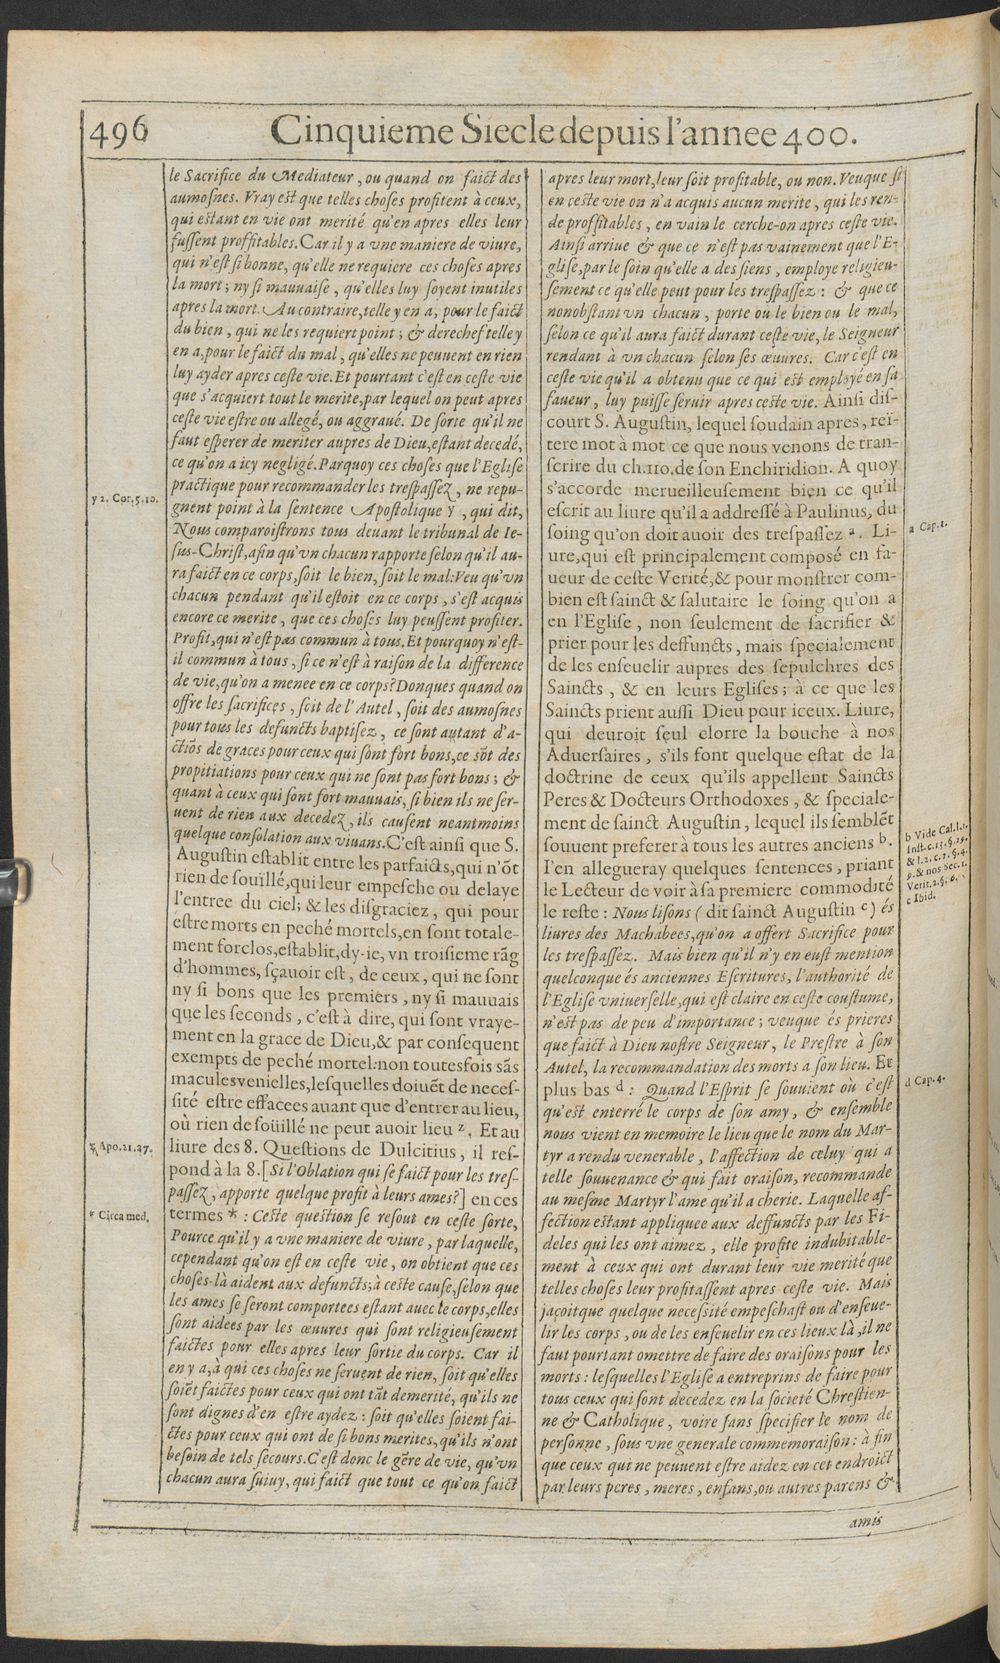 496 Cinquieme Siecle depuis l'annee 400.
le Sacrifice du Mediateur, ou quand on faict des
aumosnes. Vray est que telles choses profitent à ceux,
qui estant en vie ont merité qu'en apres elles leur
fussent proffitables. Car il y a vne maniere de viure,
qui n'est si bonne, qu'elle ne requiere ces choses apres
la mort; ny si mauuaise, qu'elles luy soyent inutiles
apres la mort. Au contraire, telle y en a, pour le faict
du bien, qui ne les requiert point; & derechef telle y
en a, pour le faict du mal, qu'elles ne peuuent en rien
luy ayder apres ceste vie. Et pourtant c'est en ceste vie
que s'acquiert tout le merite, par lequel on peut apres
ceste vie estre ou allegé, ou aggraué. De sorte qu'il ne
faut esperer de meriter aupres de Dieu, estant decedé,
ce qu'on a icy negligé. Parquoy ces choses que l'Eglise
practique pour recommander les trespassez, ne repu-
gnent point à la sentence Apostolique y, qui dit,
Nous comparoistrons tous deuant le tribunal de Ie-
sus-Christ, afin qu'vn chacun rapporte selon qu'il au-
ra faict en ce corps, soit le bien, soit le mal: Veu qu'vn
chacun pendant qu'il estoit en ce corps, s'est acquis
encore ce merite, que ces choses luy peussent profiter.
Profit, qui n'est pas commun à tous. Et pourquoy n'est-
il commun à tous, si ce n'est à raison de la difference
de vie, qu'on a menee en ce corps? Donques quand on
offre les sacrifices, soit de l'Autel, soit des aumosnes
pour tous les defuncts baptisez, ce sont autant d'a-
ctiõs de graces pour ceux qui sont fort bons, ce sõt des
propitiations pour ceux qui ne sont pas fort bons; &
quant à ceux qui sont fort mauuais, si bien ils ne ser-
uent de rien aux decedez, ils causent neantmoins
quelque consolation aux viuans. C'est ainsi que S.
Augustin establit entre les parfaicts, qui n'õt
rien de souillé, qui leur empesche ou delaye
l'entree du ciel; & les disgraciez, qui pour
estre morts en peché mortels, en sont totale-
ment forclos, establit, dy-ie, vn troisieme rãg
d'hommes, sçauoir est, de ceux, qui ne sont
ny si bons que les premiers, ny si mauuais
que les seconds, c'est à dire, qui sont vraye-
ment en la grace de Dieu, & par consequent
exempts de peché mortel: non toutesfois sãs
macules venielles, lesquelles doiuẽt de neces-
sité estre effacees auant que d'entrer au lieu,
où rien de soüillé ne peut auoir lieu z. Et au
liure des 8. Questions de Dulcitius, il res-
pond à la 8. [Si l'Oblation qui se faict pour les tres-
passez, apporte quelque profit à leurs ames?] en ces
termes *: Ceste question se resout en ceste sorte,
Pource qu'il y a vne maniere de viure, par laquelle,
cependant qu'on est en ceste vie, on obtient que ces
choses-là aident aux defuncts; à ceste cause, selon que
les ames se seront comportees estant auec le corps, elles
sont aidees par les œuures qui sont religieusement
faictes pour elles apres leur sortie du corps. Car il
en y a, à qui ces choses ne seruent de rien, soit qu'elles
soiẽt faictes pour ceux qui ont tãt demerité, qu'ils ne
sont dignes d'en estre aydez: soit qu'elles soient fai-
ctes pour ceux qui ont de si bons merites, qu'ils n'ont
besoin de tels secours. C'est donc le gẽre de vie, qu'vn
chacun aura suiuy, qui faict que tout ce qu'on faict
y 2. Cor. 5. 10.
z Apo. 21. 27.
* Circa med.
apres leur mort, leur soit profitable, ou non. Veuque si
en ceste vie on n'a acquis aucun merite, qui les ren-
de proffitables, en vain le cerche-on apres ceste vie.
Ainsi arriue & que ce n'est pas vainement que l'E-
glise, par le soin qu'elle a des siens, employe religieu-
sement ce qu'elle peut pour les trespassez: & que ce
nonobstant vn chacun, porte ou le bien ou le mal,
selon ce qu'il aura faict durant ceste vie, le Seigneur
rendant à vn chacun selon ses œuures. Car c'est en
ceste vie qu'il a obtenu que ce qui est employé en sa
faueur, luy puisse seruir apres ceste vie. Ainsi dis-
court S. Augustin, lequel soudain apres, reï-
tere mot à mot ce que nous venons de tran-
scrire du ch. 110. de son Enchiridion. A quoy
s'accorde merueilleusement bien ce qu'il
escrit au liure qu'il a addressé à Paulinus, du
soing qu'on doit auoir des trespassez a. Li-
ure, qui est principalement composé en fa-
ueur de ceste Verité, & pour monstrer com-
bien est sainct & salutaire le soing qu'on a
en l'Eglise, non seulement de sacrifier &
prier pour les deffuncts, mais specialement
de les enseuelir aupres des sepulchres des
Saincts, & en leurs Eglises; à ce que les
Saincts prient aussi Dieu pour iceux. Liure,
qui deuroit seul clorre la bouche à nos
Aduersaires, s'ils font quelque estat de la
doctrine de ceux qu'ils appellent Saincts
Peres & Docteurs Orthodoxes, & speciale-
ment de sainct Augustin, lequel ils semblẽt
souuent preferer à tous les autres anciens b.
I'en allegueray quelques sentences, priant
le Lecteur de voir à sa premiere commodité
le reste: Nous lisons (dit sainct Augustin c) és
liures des Machabees, qu'on a offert Sacrifice pour
les trespassez. Mais bien qu'il n'y en eust mention
quelconque és anciennes Escritures, l'authorité de
l'Eglise vniuerselle, qui est claire en ceste coustume,
n'est pas de peu d'importance; veuque és prieres
que faict à Dieu nostre Seigneur, le Prestre à son
Autel, la recommandation des morts a son lieu. Et
plus bas d: Quand l'Esprit se souuient où c'est
qu'est enterré le corps de son amy, & ensemble
nous vient en memoire le lieu que le nom du Mar-
tyr a rendu venerable, l'affection de celuy qui a
telle souuenance & qui fait oraison, recommande
au mesme Martyr l'ame qu'il a cherie. Laquelle af-
fection estant appliquee aux deffuncts par les Fi-
deles qui les ont aimez, elle profite indubitable-
ment à ceux qui ont durant leur vie merité que
telles choses leur profitassent apres ceste vie. Mais
jaçoitque quelque necessité empeschast ou d'enseue-
lir les corps, ou de les enseuelir en ces lieux là, il ne
faut pourtant omettre de faire des oraisons pour les
morts: lesquelles l'Eglise a entreprins de faire pour
tous ceux qui sont decedez en la societé Chrestien-
ne & Catholique, voire sans specifier le nom de
personne, sous vne generale commemoraison: à fin
que ceux qui ne peuuent estre aidez en cet endroict
par leurs peres, meres, enfans, ou autres parens &
amis
a Cap. 1.
b Vide Cal. l. 1.
Inst. c. 13. §. 29.
& l. 2. c. 2. §. 4.
9. & nos Sec. 1.
Verit. 2. §. 6.
c Ibid.
d Cap. 4.